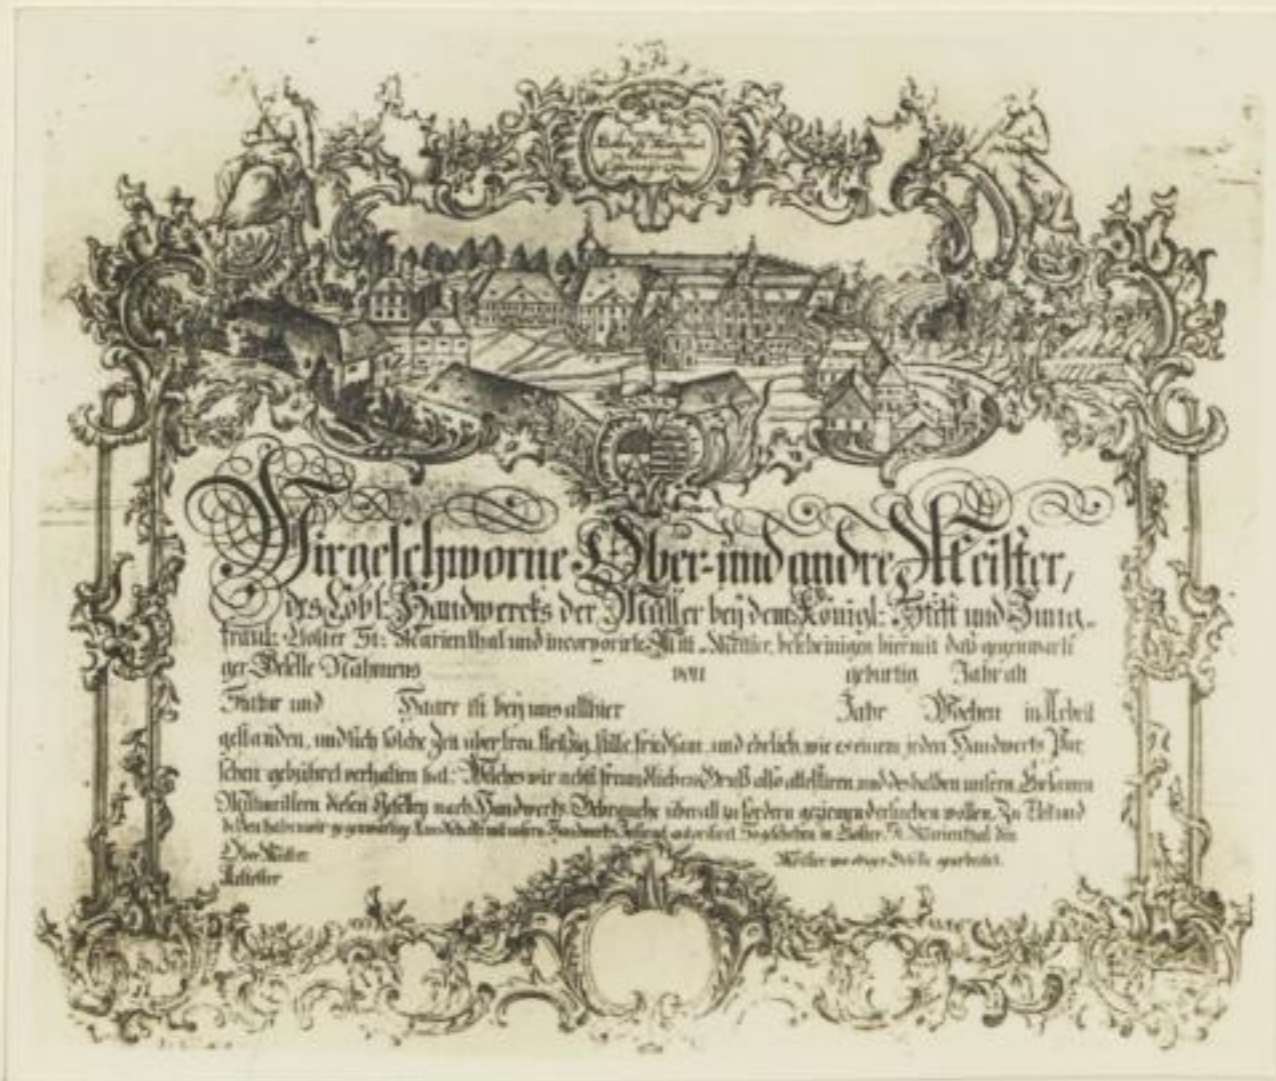 Wir geschworne Ober- und andre Meister,
des Löbl: Handwercks der Müller beÿ dem Königl: Stifft und Jung-
fräul: Closter St: Marienthal und incorporirte Mitt-Meister, bescheinigen hiermit daß gegenwärti-
ger Geselle Nahmens gebürtig Jahr alt
Statur und Haare ist beÿ uns allhier Jahr Wochen in Arbeit
gestanden, und sich solche Zeit über treu, fleißig, stille, friedsam, und ehrlich, wie es einem jeden Handwercks Pur-
schen gebühret verhalten hat: Welches wir nebst freundlichen Gruß also attestiren und deshalben unsern
Mitmeistern diesen Gesellen nach Handwercks Gebrauche überall zu fördern geziemend ersuchen wollen, Zu Uhrkund
deßen haben wir gegenwärtige Kundschafft mit unsern Handwercks So geschehen in Closter St. Marienthal den
Ober Meister Meister wo obiger Geselle gearbeitet.
Aeltester